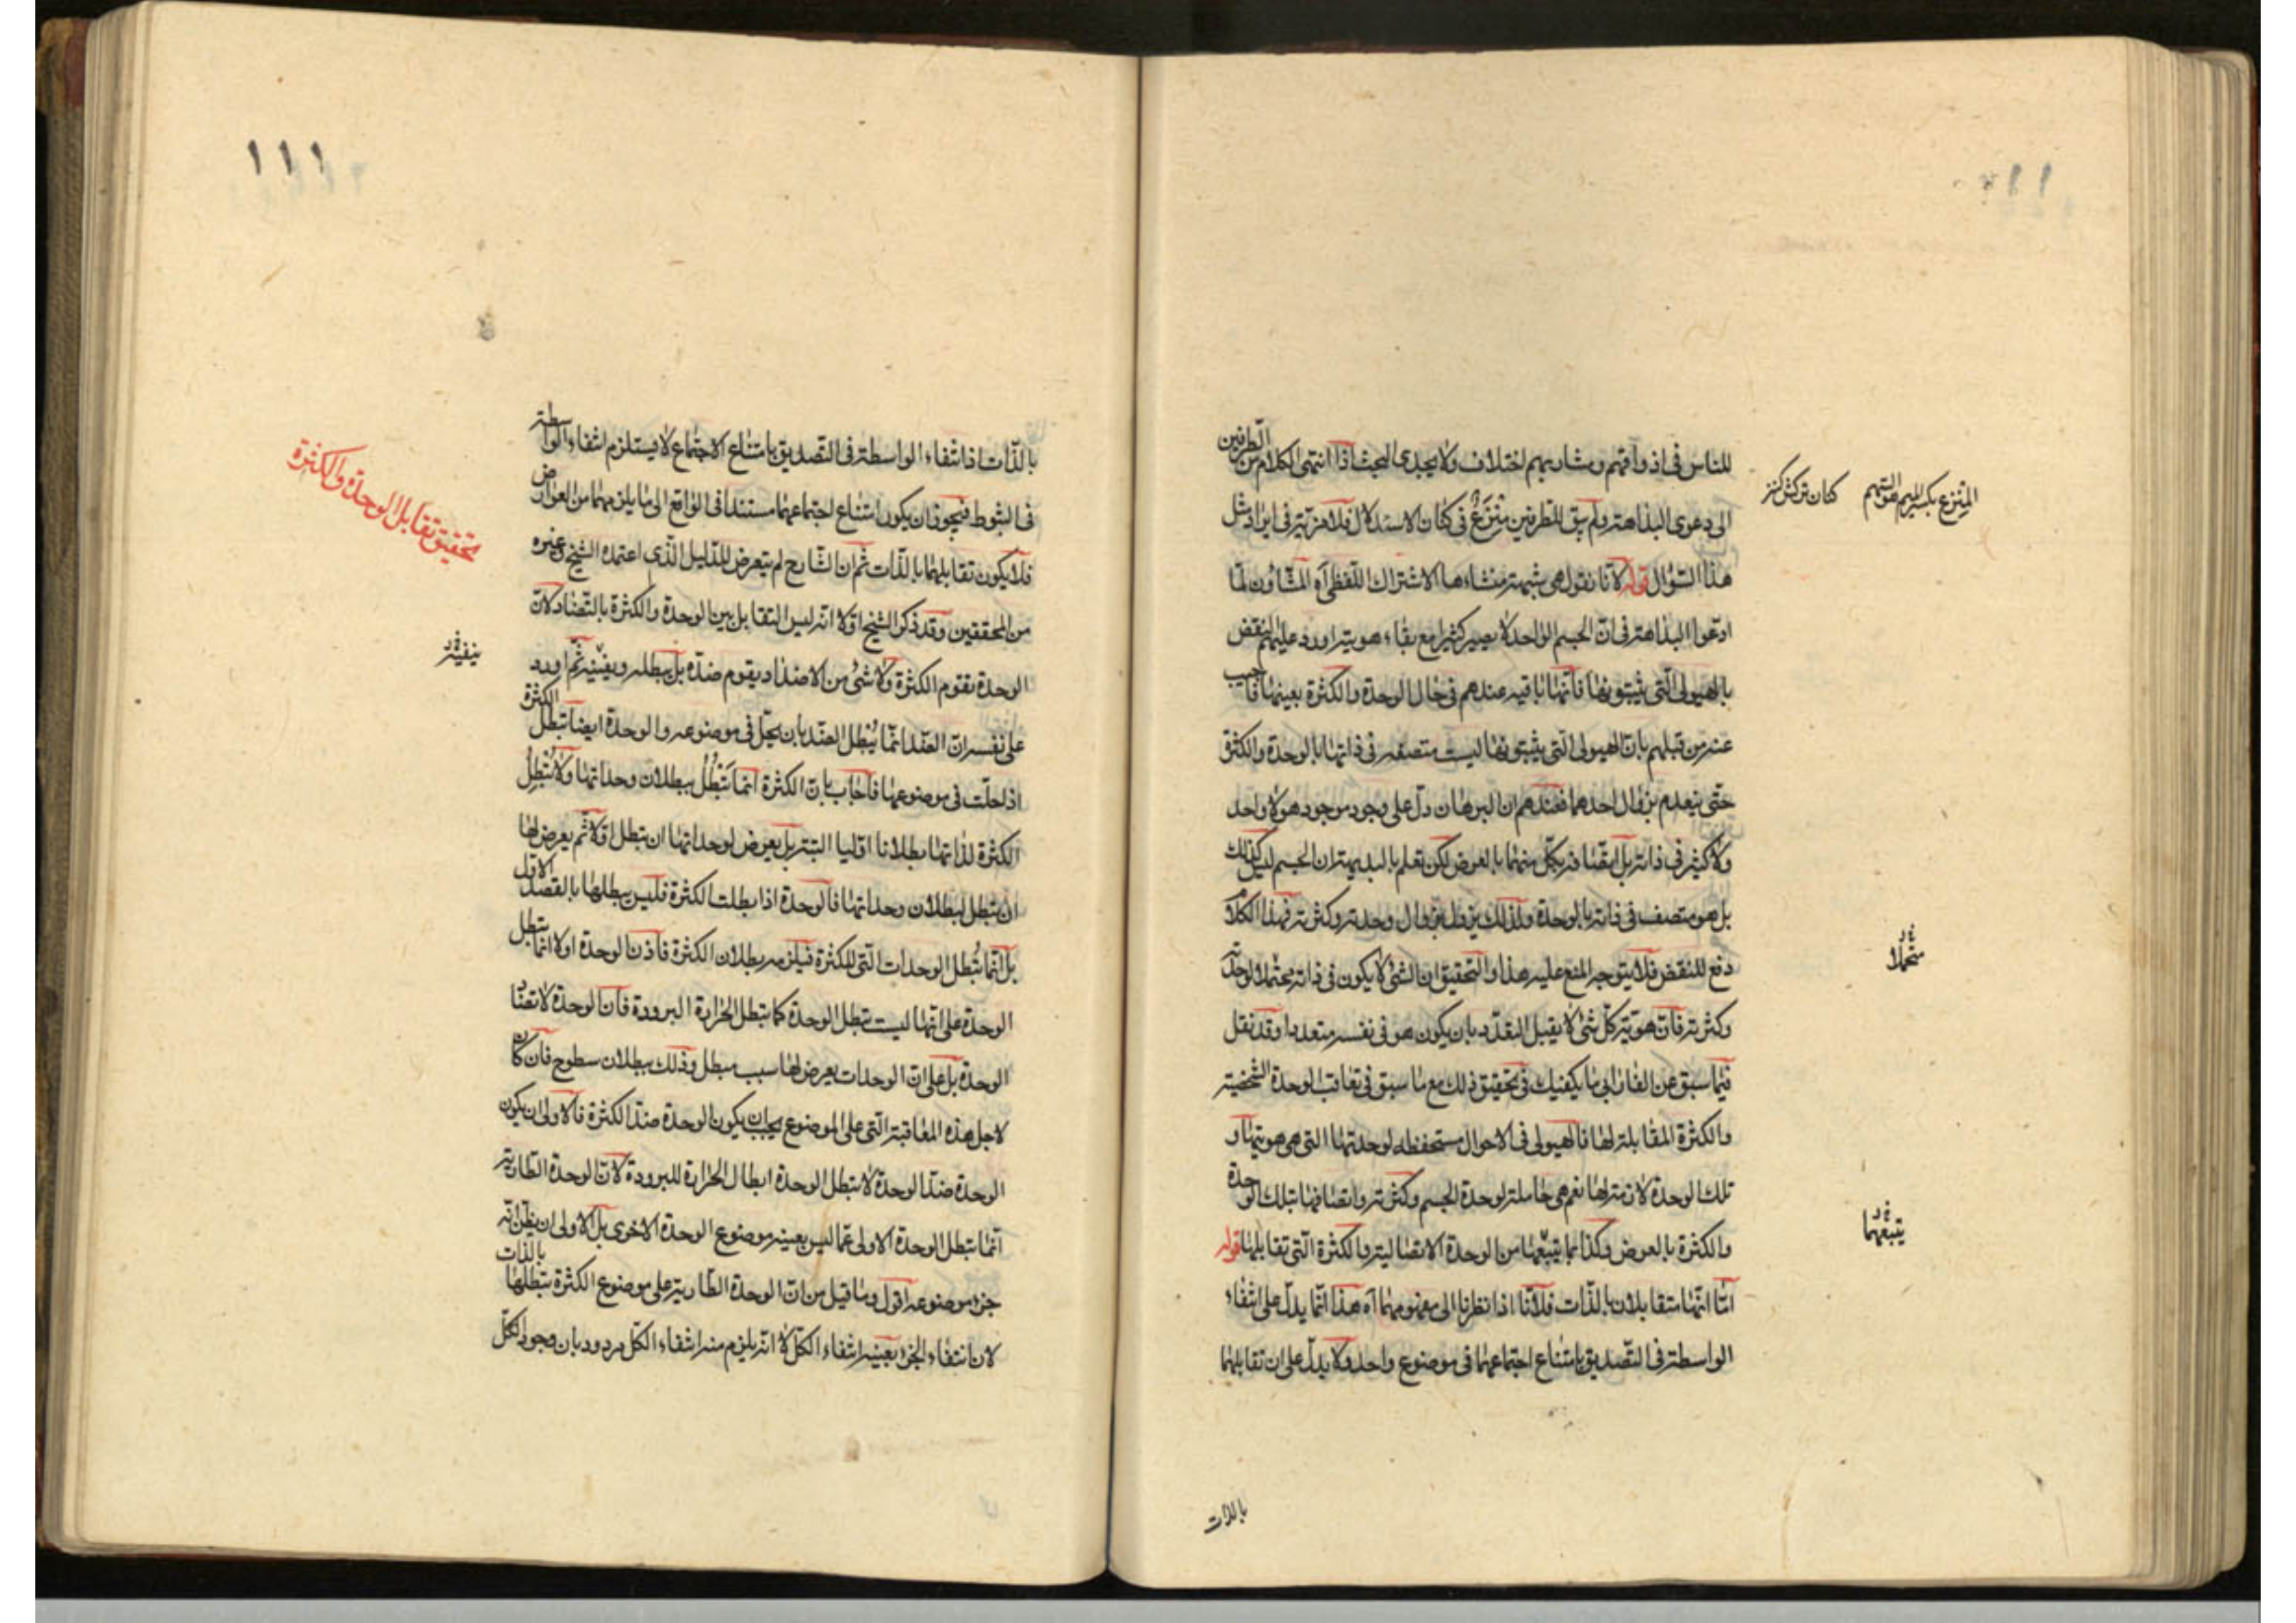 ١١٠
للناس فى اذواقهم ومشاربهم اختلاف ولا يجدى البحث اذا انتهى الكلام من الطرفين
الى دعوى البداهة ولم يبق للطرفين منزع فى كنان الاستدلال فلا مزية فى ايراد مثل
هذا السؤال قوله لانا نقول هى شبهة منشاءها الاشتراك اللفظى آه المشاؤن لما
ادعوا البداهة فى ان الجسم الواحد لا يصير كثيرا مع بقاء هويته اورد عليهم النقض
بالهيولى التى يثبتونها فانها باقية عندهم فى حال الوحدة والكثرة بعينها فاجيب
عنه من قبلهم بان الهيولى التى يثبتونها ليست متصفة فى ذاتها بالوحدة والكثرة
حتى ينعدم بزوال احدهما فعندهم ان البرهان دل على وجود موجود هو لا واحد
ولا كثير فى ذاته بل اتصافه بكل منهما بالعرض لكن تعلم بالبديهة ان الجسم ليس كذلك
بل هو متصف فى ذاته بالوحدة ولذلك يزول بزوال وحدته وكثرته فهذا الكلام
دفع للنقض فلا يتوجه المنع عليه هذا والتحقيق ان الشئ لا يكون فى ذاته محتملا لوحدته
وكثرته فان هوية كل شئ لا يقبل التعدد بان يكون هو فى نفسه متعددا وقد نقل
فيما سبق عن الفارابى ما يكفيك فى تحقيق ذلك مع ما سبق فى تعاقب الوحدة الشخصية
والكثرة المقابلة لها فالهيولى فى الاحوال مستحفظه لوحدتها التى هى هويتها و
تلك الوحدة لازمة لها نعم هى حاملة لوحدة الجسم وكثرته واتصافها بتلك الوحدة
والكثرة بالعرض وكذا بما يتبعها من الوحدة الاتصالية والكثرة التى تقابلها قوله
امّا انهما متقابلان بالذات فلانّا اذا نظرنا الى مفهومهما آه هذا انما يدل على انتفاء
الواسطة فى التصديق بامتناع اجتماعهما فى موضوع واحد ولا يدل على ان تقابلهما
بالذات
المنزع بكسر الميم السهم
يتبعهما
١١١
بالذات اذ انتفاء الواسطة فى التصديق بامتناع الاجتماع لا يستلزم انتفاء الواسطة
فى الثبوت فيجوز ان يكون امتناع اجتماعهما مستندا فى الواقع الى ما يلزمهما من العوارض
فلا يكون تقابلهما بالذات ثم ان الشارح لم يتعرض للدليل الذى اعتمده الشيخ وغيره
من المحققين وقد ذكر الشيخ اولا انه ليس التقابل بين الوحدة والكثرة بالتضاد لان
الوحدة يقوم الكثرة ولا شئ من الاضداد يقوم ضده بل يبطله وينفيه ثم اورد
على نفسه ان الضد انما يبطل الضد بان يحل فى موضوعه والوحدة ايضا تبطل الكثرة
اذا حلت فى موضوعها فاجاب بان الكثرة انما تبطل ببطلان وحداتها ولا تبطل
الكثرة لذاتها بطلانا اوليا البتة بل يعرض لوحداتها ان تبطل اولا ثم يعرض لها
ان تبطل لبطلان وحداتها فالوحدة اذا ابطلت الكثرة فليس يبطلها بالقصد الاول
بل انما تبطل الوحدات التى للكثرة فيلزمه بطلان الكثرة فاذن الوحدة اولا انما تبطل
الوحدة على انها ليست تبطل الوحدة كما تبطل الحرارة البرودة فان الوحدة لا تضاد
الوحدة بل على ان الوحدات يعرض لها سبب مبطل وذلك ببطلان سطوح فان كان
لاجل هذه المعاقبة التى على الموضوع يجب ان يكون الوحدة ضد الكثرة فالاولى ان يكون
الوحدة ضد الوحدة لا تبطل الوحدة ابطال الحرارة للبرودة لان الوحدة الطارية
انما تبطل الوحدة الاولى عما ليس بعينه موضوع الوحدة الاخرى بل الاولى ان يظن انه
جزء موضوعه اقول وما قيل من ان الوحدة الطارية على موضوع الكثرة تبطلها بالذات
لان انتفاء الجزء بعينه انتفاء الكل لا انه يلزم منه انتفاء الكل مردود بان وجود الكل
تحقيق تقابل الوحدة والكثرة